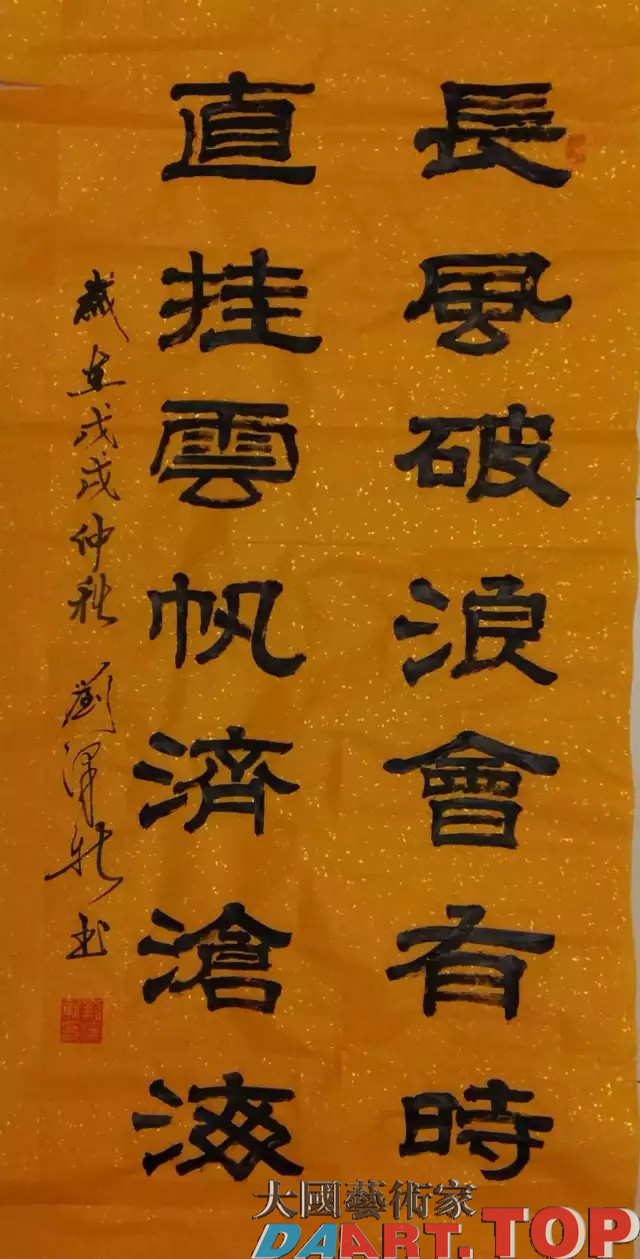 長風破浪會有時
直挂雲帆濟滄海
歲在戊戌仲秋 劉澤秋 书
大國藝術家
DAART.TOP